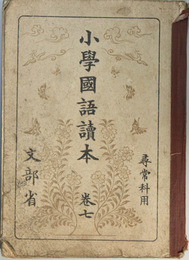 尋常科用
小學國語讀本 卷七
文部省